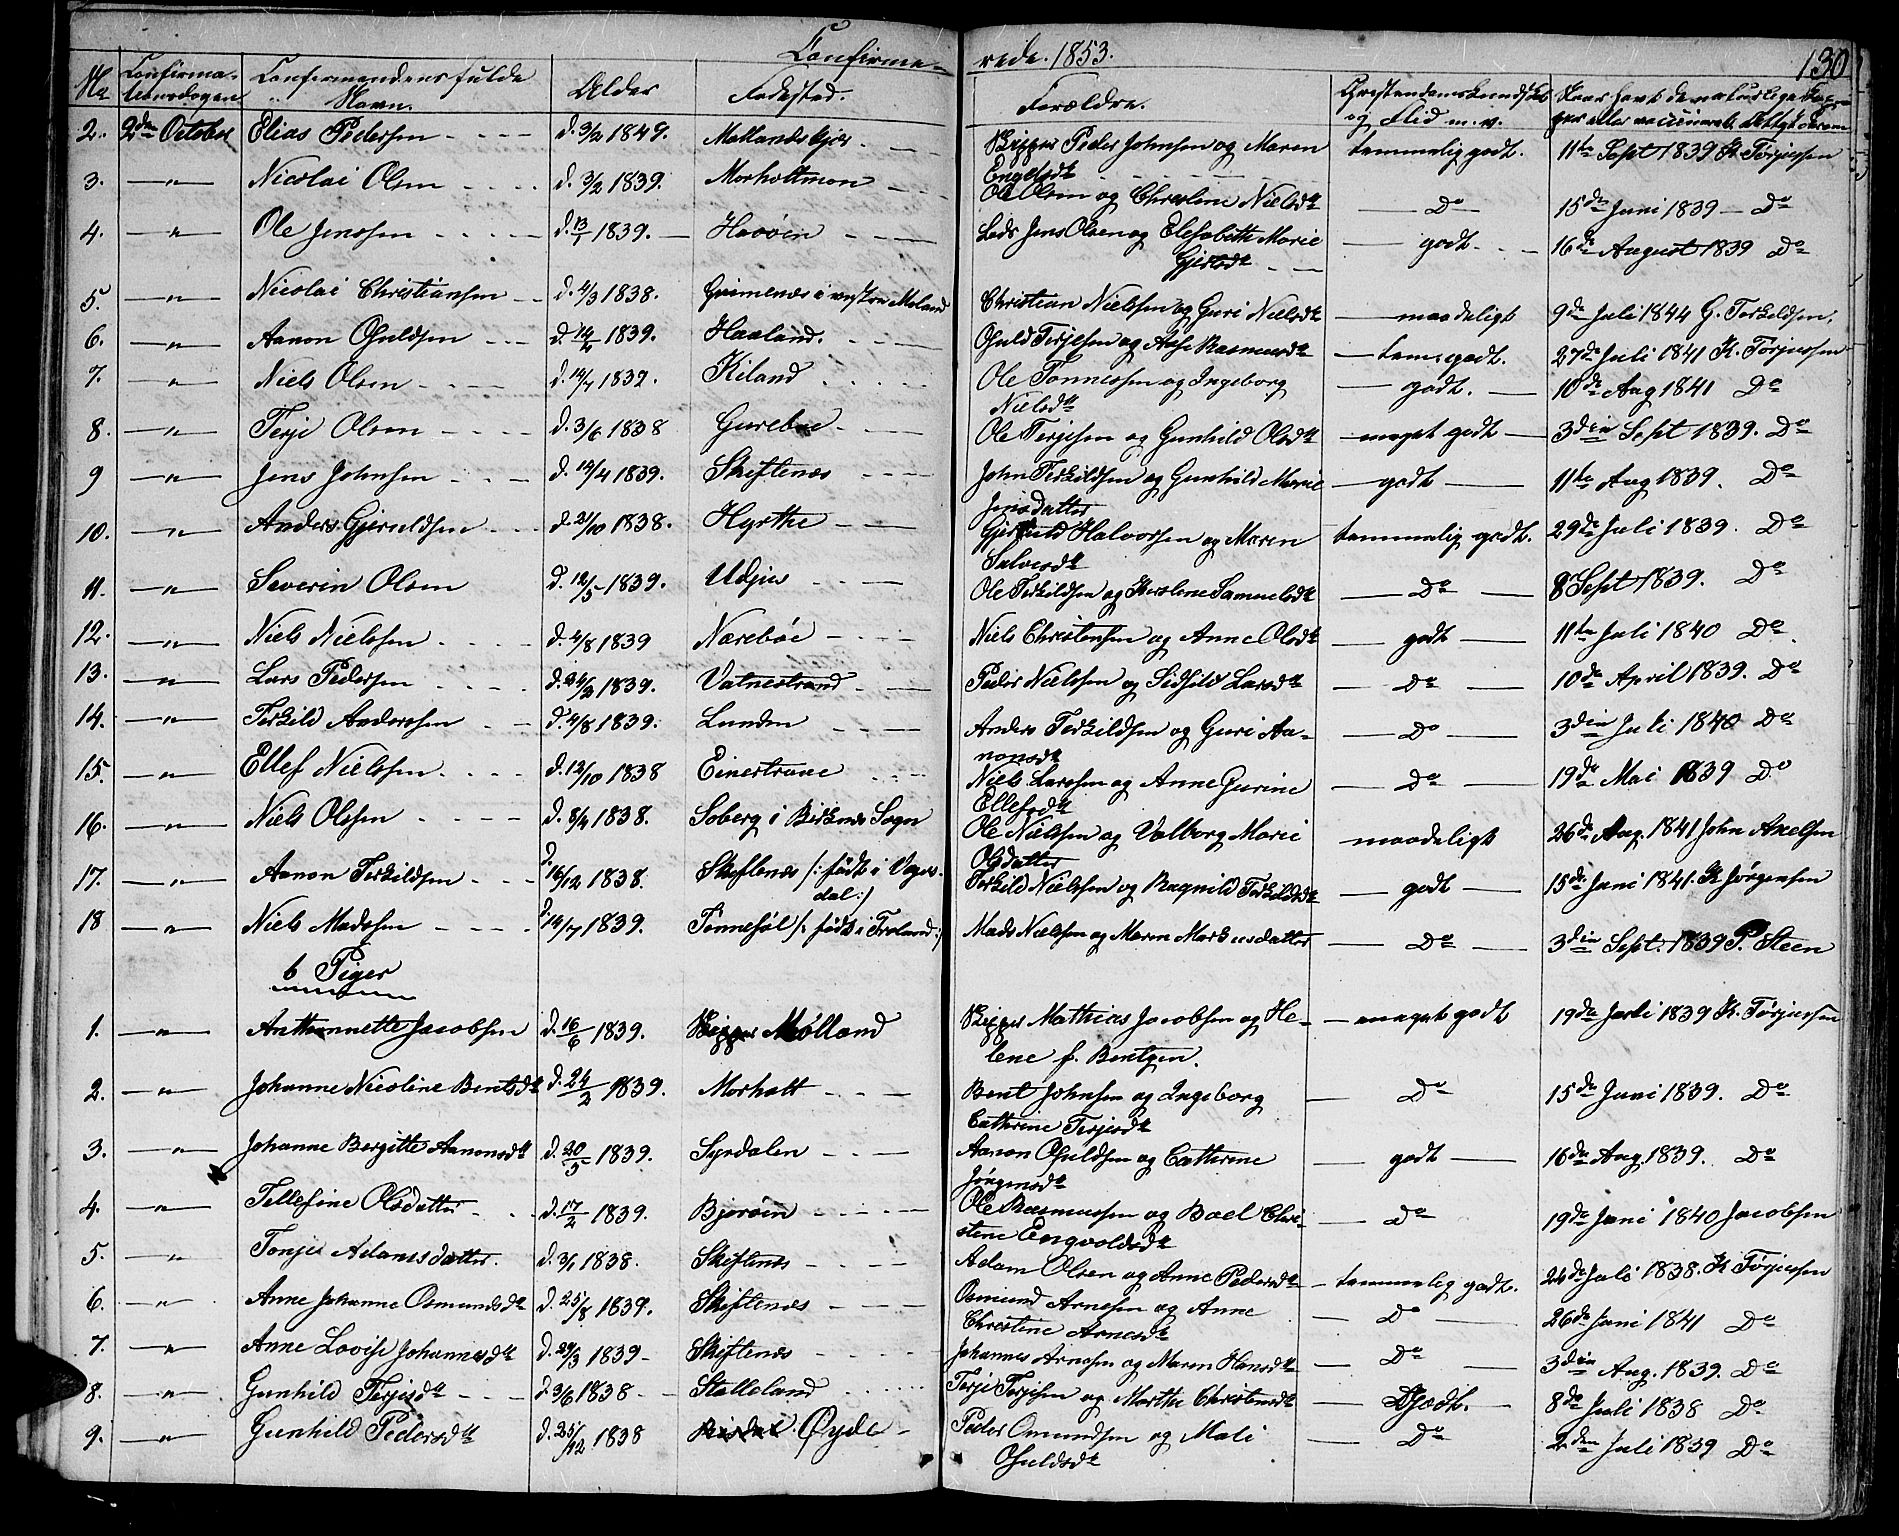 Confirme- rede. 1853. 130
No Confirma- Confirmandens fulde Alder Fødested. Forældre. Christendomskundskab
tionsdagen Navn. og Flid m. v.
2. 2den October Elias Pedersen d. 3/2 1849. Mollandskjær Skipper Peder Johnsen og Maren temmelig godt. 11te Sept 1839 K. Tørjussen
Engelsdt
3. —"— Nicolai Olsen d. 3/2 1839. Morholtmon Ole Olsen og Christine Nielsdt — Do — 15de Juni 1839 — Do
4. —"— Ole Jenssen d. 13/1 1839. Havøen Lods Jens Olsen og Elisabeth Marie — godt. — 16de August 1839 Do
Gjersdt
5. —"— Nicolai Christiansen d. 4/3 1838. Grimenæs i vestre Moland Christian Nielsen og Guri Nielsdt — maadeligt 9de Juli 1844 G. Torkildsen.
6. —"— Aanon Osuldsen d. 14/4 1839. Haaland. Osuld Terjesen og Aase Rasmusdt — tem. godt. 27de Juli 1841 K. Tørjussen
7. —"— Niels Olsen d. 14/7 1839. Kiland Ole Tønnessen og Ingeborg — godt. — 10de Aug 1841 Do
Nielsdt
8. —"— Terje Olsen d. 3/6 1838 Gurebøe Ole Terjesen og Gunhild Olsdt — meget godt — 3die Sept 1839. Do
9 —"— Jens Johnsen d. 14/4 1839. Skiftenæs John Terkildsen og Gunhild Marie — godt — 11te Aug 1839. Do
Jensdatter
10. —"— Anders Gjeruldsen d. 21/10 1838. Hyrthe Gjeruld Halvorsen og Maren temmelig godt. 29de Juli 1839. Do
Salvesdt
11. —"— Severin Olsen d. 12/5 1839. Udjus Ole Terkildsen og Kirstene Samuelsdt — Do — 8 Sept 1839. Do
12. —"— Niels Nielssen d. 4/8 1839 Nærebøe Niels Christensen og Anne Olsdt — godt — 11te Juli 1840 Do
13. —"— Lars Pedersen d. 24/2 1839. Vatnestrand Peder Nielssen og Sidsild Larsdt — Do — 10de April 1839. Do
14. —"— Terkild Anderssen d. 4/8 1839. Lunden Anders Terkildsen og Guri Aa- — Do — 3die Juli 1840 Do
nonsdt
15. —"— Ellef Nielssen d. 12/10 1838 Einestrane Niels Larssen og Anne Gurine — Do — 19de Mai 1839 Do
Ellefsdt
16. —"— Niels Olssen d. 8/4 1838. Soberg i Birkenes Sogn Ole Nielssen og Valborg Marie maadeligt 26de Aug. 1841 John Axelsen
Olsdatter
17. —"— Aanon Terkildsen d. 16/12 1838. Skiftenæs /: født i Veges- Terkild Nielssen og Ragnild Terkildsdt — godt — 15de Juni 1841. K Jørgensen
dal :/
18 —"— Niels Madssen d. 14/7 1839. Tønnesøl /: født i Froland :/ Mads Nielssen og Maren Markusdatter — Do — 3die Sept. 1839 P. Steen
b Piger
1. —"— Anthonnette Jacobsen d. 16/6 1839. Skipper Mølland Skipper Mathias Jacobsen og He- — meget godt 19de Juli 1839 K. Tørjussen
lene f. Bentzen.
2. —"— Johanne Nicoline Bentsdt d. 24/2 1839. Morholt Bent Johnsen og Ingeborg — Do 15de Juni 1839. Do
Cathrine Terjesdt
3. —"— Johanne Bergitte Aanonsdt d. 20/5 1839. Syrdalen Aanon Osuldsen og Cathrine — godt — 16de Aug. 1839. Do
Jörgensdt
4. —"— Tellefine Olsdatter d. 17/2 1839. Bjorøen Ole Rasmussen og Boel Chri- — Do 19de Juni 1840 Jacobsen
stene Engvoldsdt
5. " Tonjes Adamsdatter. d. 3/1 1838. Skiftenæs Adam Olsen og Anne Pedersdt — temmelig godt. 24de Juli 1838. K Tørjussen
6. —"— Anne Johanne Osmundsdt d. 25/8 1839. Skiftenæs Osmund Arnesen og Anne Do — 26de Juni 1841 Do
Christine Arnesdt
7. —"— Anne Lovise Johannesdt d. 29/3 1839 Skiftenæs Johannes Arnesen og Maren Hansdt — Do — 3die Aug. 1839. Do
8. —"— Gunhild Terjesdt d. 3/6 1838 Stalleland Terje Terjesen og Marthe Christensdt — Godt. — 8de Juli 1838 Do
9. —"— Gunhild Pedersdt d. 25/12 1838 Øyde Peder Omundsen og Mali — Do 2den Juli 1839 Do
Osuldsdt